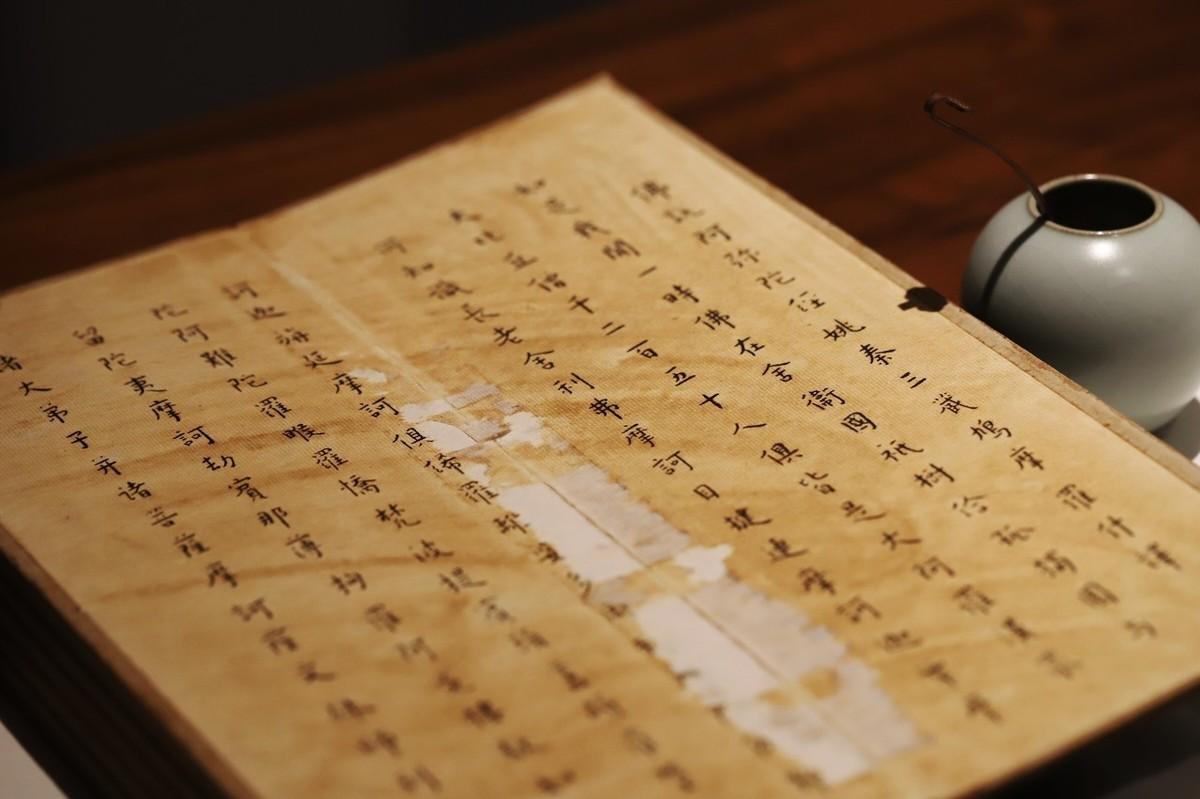 佛說阿弥陀経姚秦三蔵鳩摩羅什譯
如是我聞一時佛在舍衛國祇樹給孤獨園与
大比丘僧千二百五十人俱皆是大阿羅漢衆
所知識長老舍利弗摩訶目揵連摩訶迦葉摩
訶迦旃延摩訶俱絺羅離婆多
陀阿難陀羅睺羅憍梵波提賓頭盧
留陀夷摩訶劫賓那薄拘羅阿㝹樓馱如
諸大弟子并諸菩薩摩訶薩文殊師利